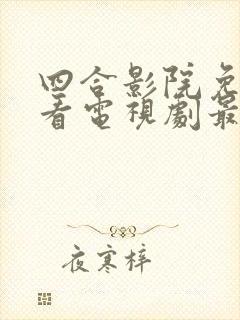 四合影院免
看電視劇最
夜寒梓